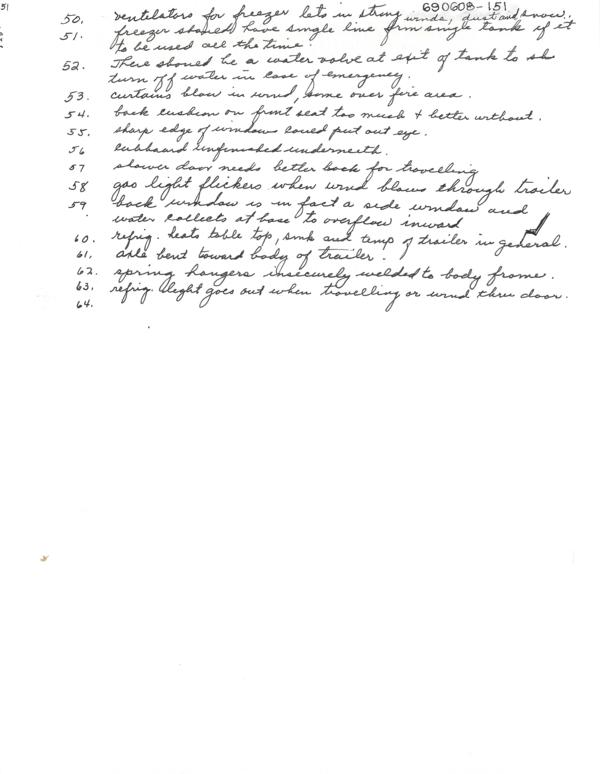 51
690608-151
50. ventilators for freezer lets in strong winds, dust and snow.
51. freezer should have single line from single tank if it
to be used all the time.
52. There should be a water valve at exit of tank to sh
turn off water in case of emergency.
53. curtains blow in wind, some over fire area.
54. back cushion on front seat too much + better without.
55. sharp edge of window could put out eye.
56 cubboard unfinished underneith.
57 shower door needs better lock for travelling
58 gas light flickers when wind blows through trailer
59 back window is in fact a side window and
water collects at base to overflow inward
60. refrig. heats table top, sink and temp of trailer in general.
61. axle bent toward body of trailer.
62. spring hangers insecurely welded to body frame.
63. refrig. light goes out when travelling or wind thru door.
64.